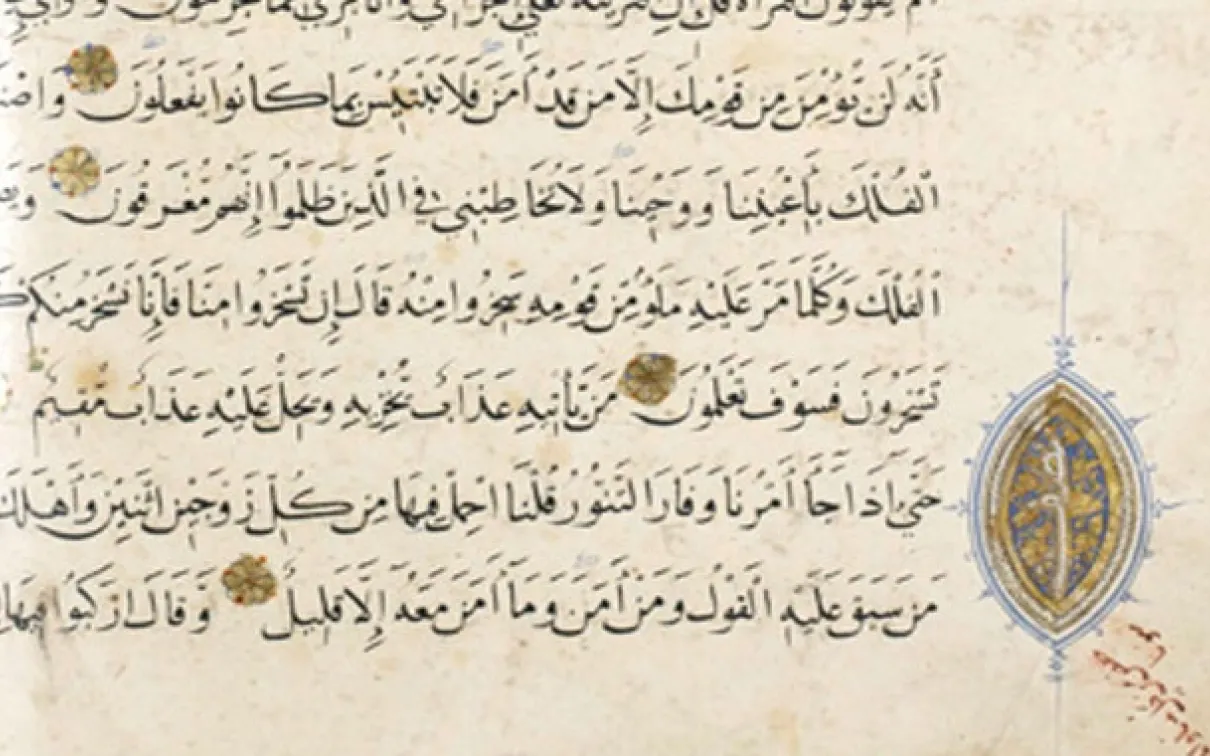 أم يقولون افتراه قل إن افتريته فعلي إجرامي وأنا بريء مما تجرمون وأوحي
أَنَّهُ لَن يُؤْمِنَ مِن قَوْمِكَ إِلَّا مَن قَدْ آمَنَ فَلَا تَبْتَئِسْ بِمَا كَانُوا يَفْعَلُونَ وَاصْنَ
الْفُلْكَ بِأَعْيُنِنَا وَوَحْيِنَا وَلَا تُخَاطِبْنِي فِي الَّذِينَ ظَلَمُوا إِنَّهُم مُّغْرَقُونَ وَيَصْ
الْفُلْكَ وَكُلَّمَا مَرَّ عَلَيْهِ مَلَأٌ مِّن قَوْمِهِ سَخِرُوا مِنْهُ قَالَ إِن تَسْخَرُوا مِنَّا فَإِنَّا نَسْخَرُ مِنكُمْ كَ
تَسْخَرُونَ فَسَوْفَ تَعْلَمُونَ مَن يَأْتِيهِ عَذَابٌ يُخْزِيهِ وَيَحِلُّ عَلَيْهِ عَذَابٌ مُّقِيمٌ
حَتَّى إِذَا جَاءَ أَمْرُنَا وَفَارَ التَّنُّورُ قُلْنَا احْمِلْ فِيهَا مِن كُلٍّ زَوْجَيْنِ اثْنَيْنِ وَأَهْلَكَ
مَن سَبَقَ عَلَيْهِ الْقَوْلُ وَمَنْ آمَنَ وَمَا آمَنَ مَعَهُ إِلَّا قَلِيلٌ وَقَالَ ارْكَبُوا فِيهَا